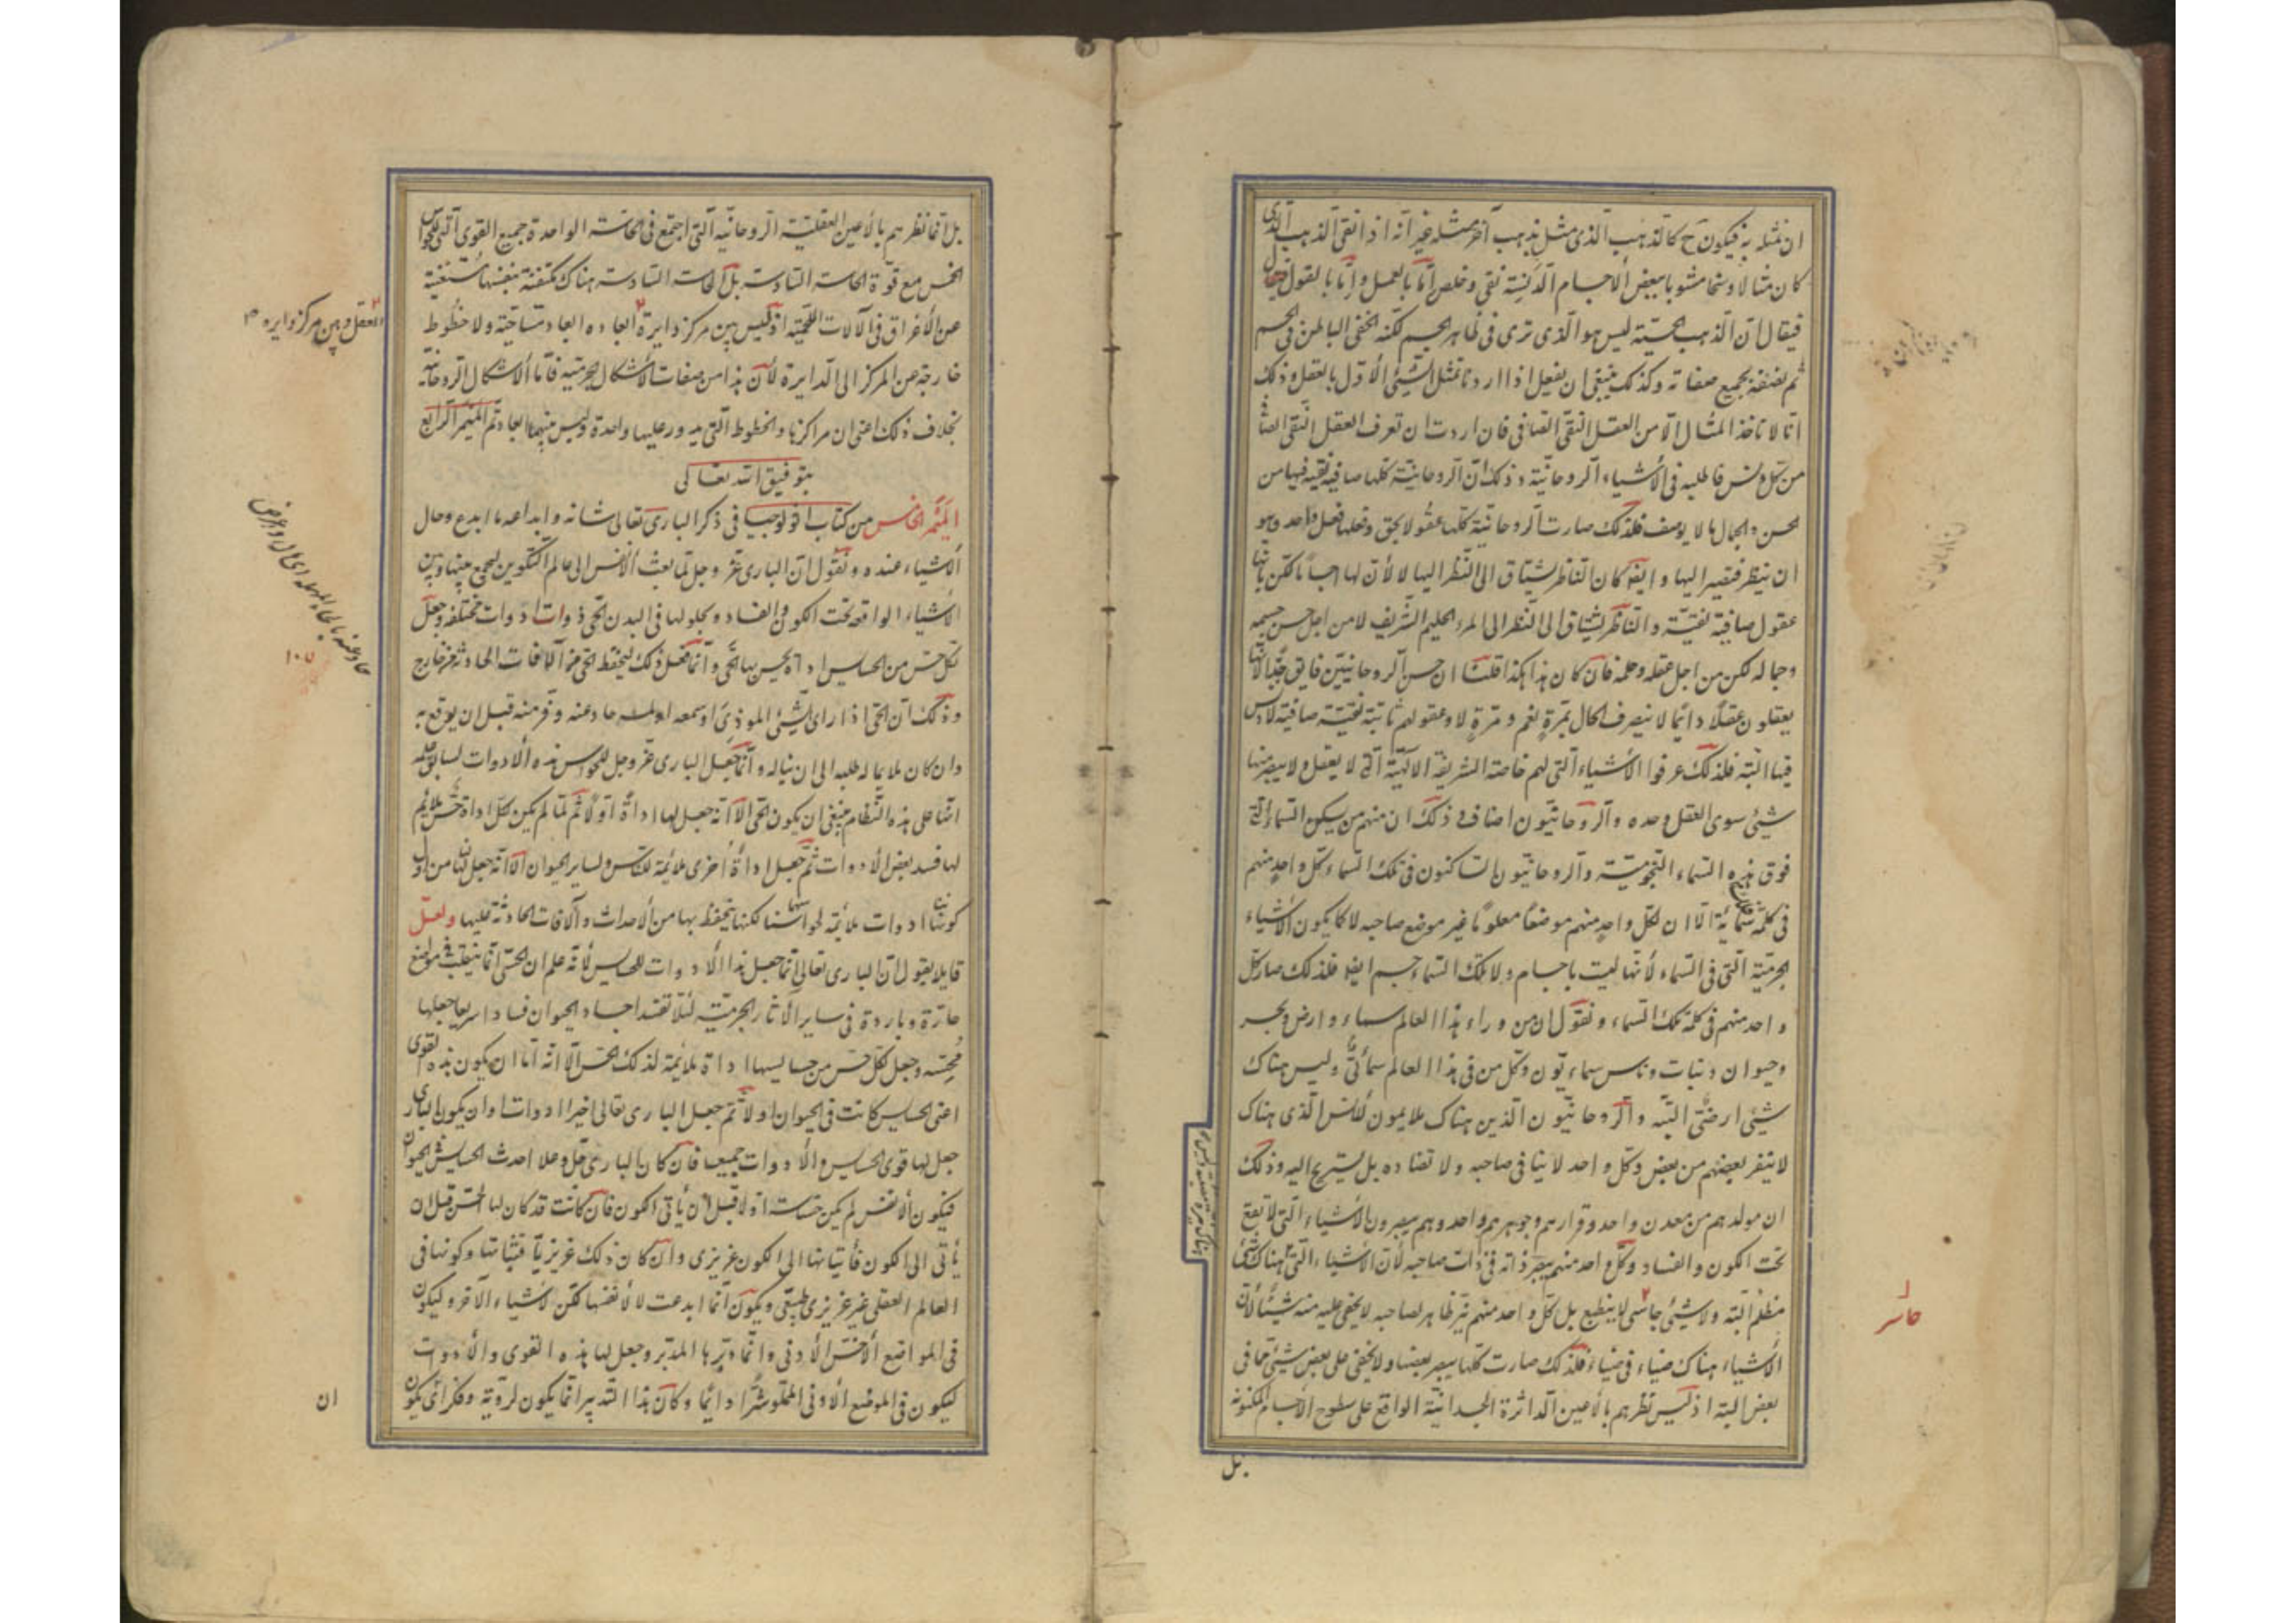 ان نمثله به فيكون ح كالذهب الذى مثل بذهب آخر مثله غير انه اذا نقى الذهب الذى
كان مثالا وسخا مشوبا ببعض الاجسام الدنية نقى وخلص اما بالعمل واما بالقول
فيقال ان الذهب ليس هو الذى ترى فى ظاهر الجسم لكنه الخفى الباطن فى الجسم
ثم نصفه بجميع صفاته وكذلك ينبغى ان نفعل اذا اردنا تمثل الشيئ الاول بالعقل وذلك
انا لا ناخذ المثال الا من العقل النقى الصافى فان اردت ان تعرف العقل النقى الصافى
من كل دنس فاطلبه فى الاشياء الروحانية وذلك ان الروحانية كلها صافية نقية فيها من
الحسن والجمال ما لا يوصف فلذلك صارت الروحانية كلها عقولا بحق وفعلها فعل واحد وهو
ان ينظر فيصير اليها وايضا كان الناظر يشتاق الى النظر اليها لا لان لها اجساما لكن بانها
عقول صافية نقية والناظر يشتاق الى النظر الى المرء الحليم الشريف لا من اجل حسن جسمه
وجماله لكن من اجل عقله وعلمه فان كان هذا هكذا قلنا ان حسن الروحانيين فايق جدا لانها
يعقلون عقلا دائما لا يتصرف الحال بمرة نعم ومرة لا وعقولهم ثابتة نقية صافية لا دنس
فيها البتة فلذلك عرفوا الاشياء التى لهم خاصة الشريفة الالهية التى لا يعقل ولا يبصر منها
شيئ سوى العقل وحده والروحانيون اصناف وذلك ان منهم من يسكن السماء التى
فوق هذه السماء النجومية والروحانيون الساكنون فى تلك السماء كل واحد منهم
فى كلية سمائه الا ان لكل واحد منهم موضعا معلوما غير موضع صاحبه لا كما يكون الاشياء
الجرمية التى فى السماء لانها ليست باجسام ولا تلك السماء جسم ايضا فلذلك صار كل
واحد منهم فى كلية تلك السماء ونقول ان من وراء هذا العالم سماء وارض وبحر
وحيوان ونبات وناس سماويون وكل من فى هذا العالم سمائى وليس هناك
شيئ ارضى البتة والروحانيون الذين هناك ملايمون للانس الذى هناك
لا ينفر بعضهم من بعض وكل واحد لا ينافى صاحبه ولا تضاده بل يستريح اليه وذلك
ان مولدهم من معدن واحد وقرارهم وجوهرهم واحد وهم يبصرون الاشياء التى لا تقع
تحت الكون والفساد وكل واحد منهم يبصر ذاته فى ذات صاحبه لان الاشياء التى هناك
مظلم البتة ولا شيئ جاسى لا ينطبع بل كل واحد منهم نير ظاهر لصاحبه لا يخفى عليه منه شيئا لان
الاشياء هناك ضياء فى ضياء فلذلك صارت كلها يبصر بعضها ولا يخفى على بعض شيئ مما فى
بعض البتة اذ ليس نظرهم بالاعين الداثرة الجسدانية الواقع على سطوح الاجسام المكونة
بل
جاسر
بل انما نظرهم بالاعين العقلية الروحانية التى اجتمع فى الحاسة الواحدة جميع القوى التى للحواس
الخمس مع قوة الحاسة السادسة بل الحاسة السادسة هناك مكتفية بنفسها مستغنية
عن الاغراق فى الآلات اللحمية اذ ليس بين مركز دايرة ابعاده ابعاد مساحية ولا خطوط
خارجة عن المركز الى الدايرة لان هذا من صفات الاشكال الجرمية فاما الاشكال الروحانية
بخلاف ذلك اعنى ان مراكزها والخطوط التى يدور عليها واحدة وليس بينهما ابعاد تم الميمر الرابع
بتوفيق الله تعالى
الميمر الخامس من كتاب اثولوجيا فى ذكر البارى تعالى شانه وابداعه ما ابدع وحال
الاشياء عنده ونقول ان البارى عز وجل لما بعث الانفس الى عالم التكوين ليجمع بينها وبين
الاشياء الواقعة تحت الكون والفساد وبحلولها فى البدن الحى ذوات ادوات مختلفة وجعل
لكل حس من الحسايس اداة يحس بها الحى وانما فعل ذلك ليتحفظ الحى من الآفات الحادثة من خارج
وذلك ان الحى اذا راى الشيئ الموذى او سمعه او لمسه حاد عنه وفر منه قبل ان يوقع به
وان كان ملايما له طلبه الى ان يناله وانما جعل البارى عز وجل للحواس هذه الادوات لسابق علمه
انها على هذه النظام ينبغى ان يكون الحى الا انه جعل لها اداة اولا ثم لما لم يكن كل اداة حس يلايم
لها فسد بعض الادوات ثم جعل اداة اخرى ملائمة للناس ولساير الحيوان الا انه جعل لها من اول
كونها ادوات ملائمة لحواسنا لكنها يتحفظ بها من الاحداث والآفات الحادثة عليها ولعل
قايلا يقول ان البارى تعالى انما جعل هذا الادوات للحسايس لانه علم ان الحى انما ينقلب فى مواضع
حارة وباردة فى ساير الآثار الجرمية لئلا تفسد اجساد الحيوان فسادا سريعا جعلها
محسة وجعل لكل حس من حسايسها اداة ملائمة لذلك الحس الا انه اما ان يكون هذه القوى
اعنى الحسايس كانت فى الحيوان اولا ثم جعل البارى تعالى اخيرا ادوات او ان يكون البارى
جعل لها قوى الحسايس والادوات جميعا فان كان البارى جل وعلا احدث الحسايس فى الحيوان
فيكون الانفس لم يكن حساسة اولا قبل ان يأتى الكون فان كانت قد كان لها الحس قبل ان
يأتى الى الكون فأتيانها الى الكون غريزى وان كان ذلك غريزيا فثباتها وكونها فى
العالم العقلى غير غريزى طبيعى ويكون انما ابدعت لا لانفسها لكن لاشياء الآخر وليكون
فى المواضع الاخس الادنى وانما دبرها المدبر وجعل لها هذه القوى والادوات
ليكون فى الموضع الادنى المملو شرا دائما وكأن هذا التدبير انما يكون لروية وفكر اى يكون
ان
العقل وبين مركز دايره